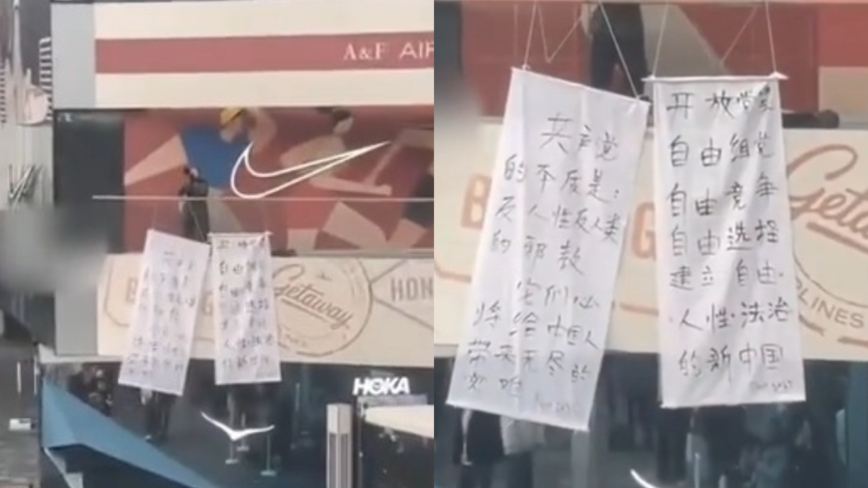 A&F AIR
Getaway
HON
HOKA
共产党
的本质是：
反人性反人类
的邪教
它们必
将给中国人
带来无尽的
灾难
开放党禁
自由组党
自由竞争
自由选择
建立自由·
人性·法治
的新中国
Getaw
RLINES